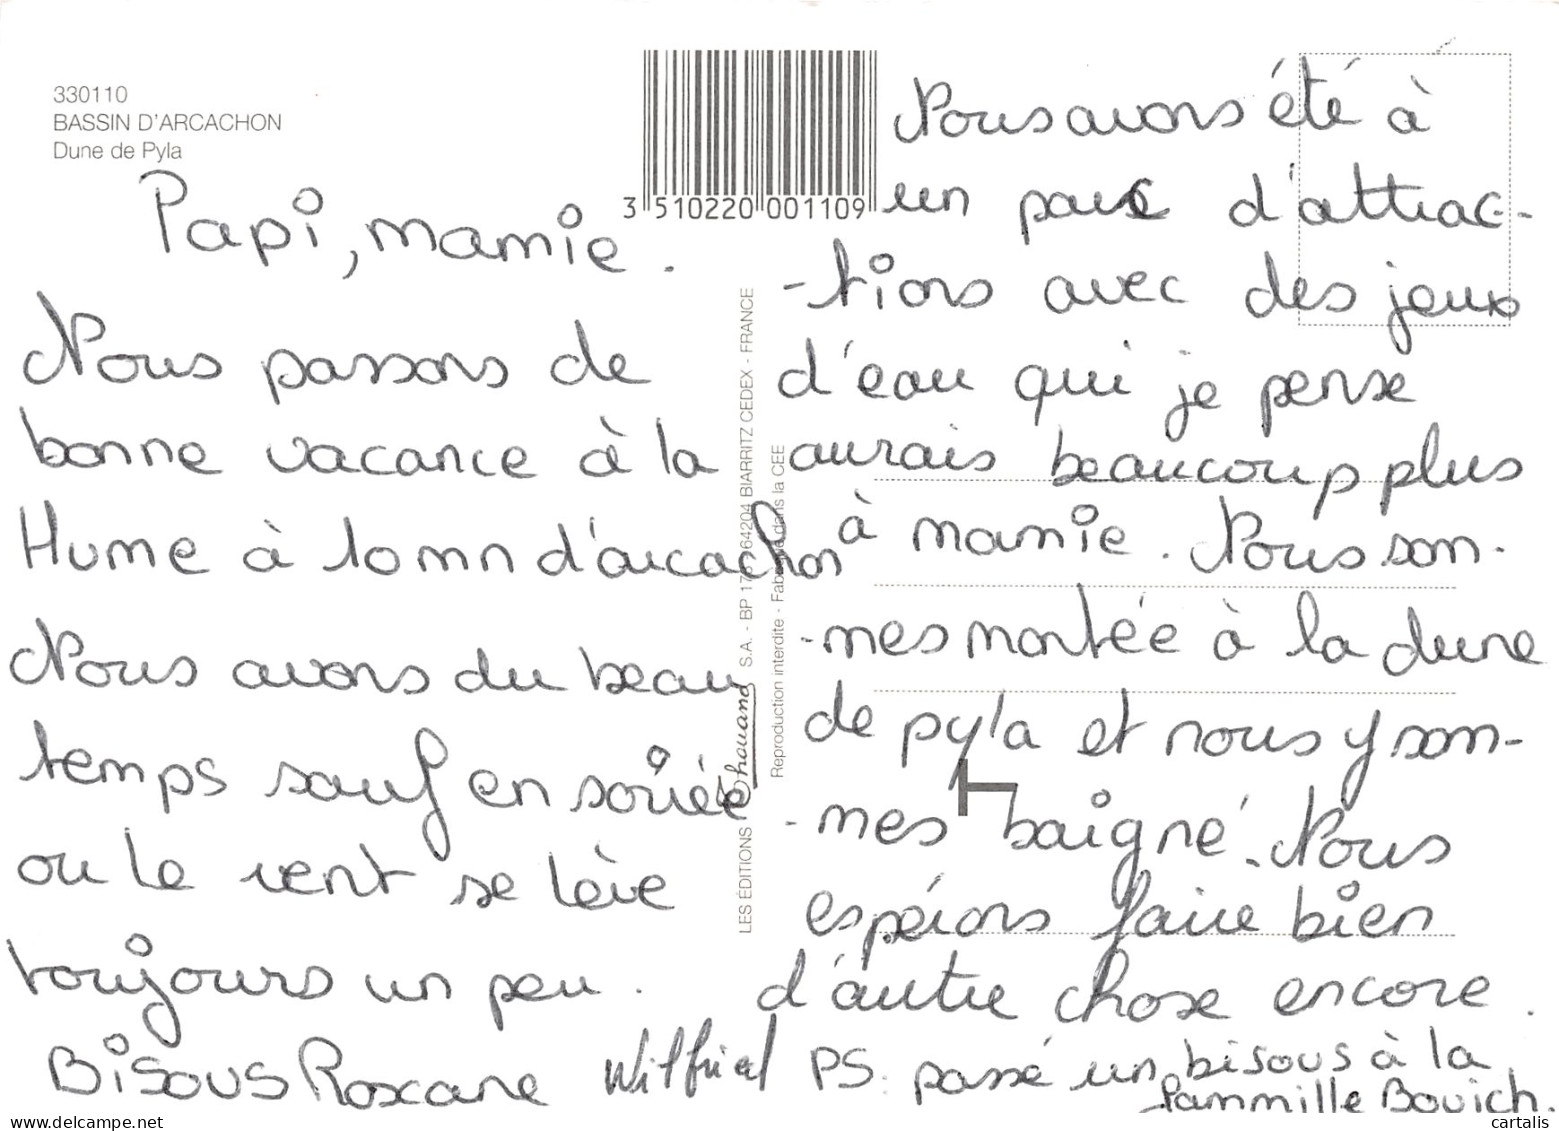 330110
BASSIN D'ARCACHON
Dune de Pyla
3 510220 001109
Papi, mamie.
Nous passons de
bonne vacance à la
Hume à 10mn d'arcachon
Nous avons du beau
temps sauf en soirée
ou le vent se lève
toujours un peu.
Bisous Roxane Wilfried
LES ÉDITIONS Chauand S.A. - BP 64204 BIARRITZ CEDEX - FRANCE
Reproduction interdite - dans la CEE
Nous avons été à
un parc d'attrac-
-tions avec des jeux
d'eau qui je pense
aurais beaucoup plus
à mamie. Nous som-
-mes montée à la dune
de pyla et nous y som-
-mes baigné. Nous
espérons faire bien
d'autre chose encore.
PS: passé un bisous à la
fammille Bovich.
www.delcampe.net
cartalis